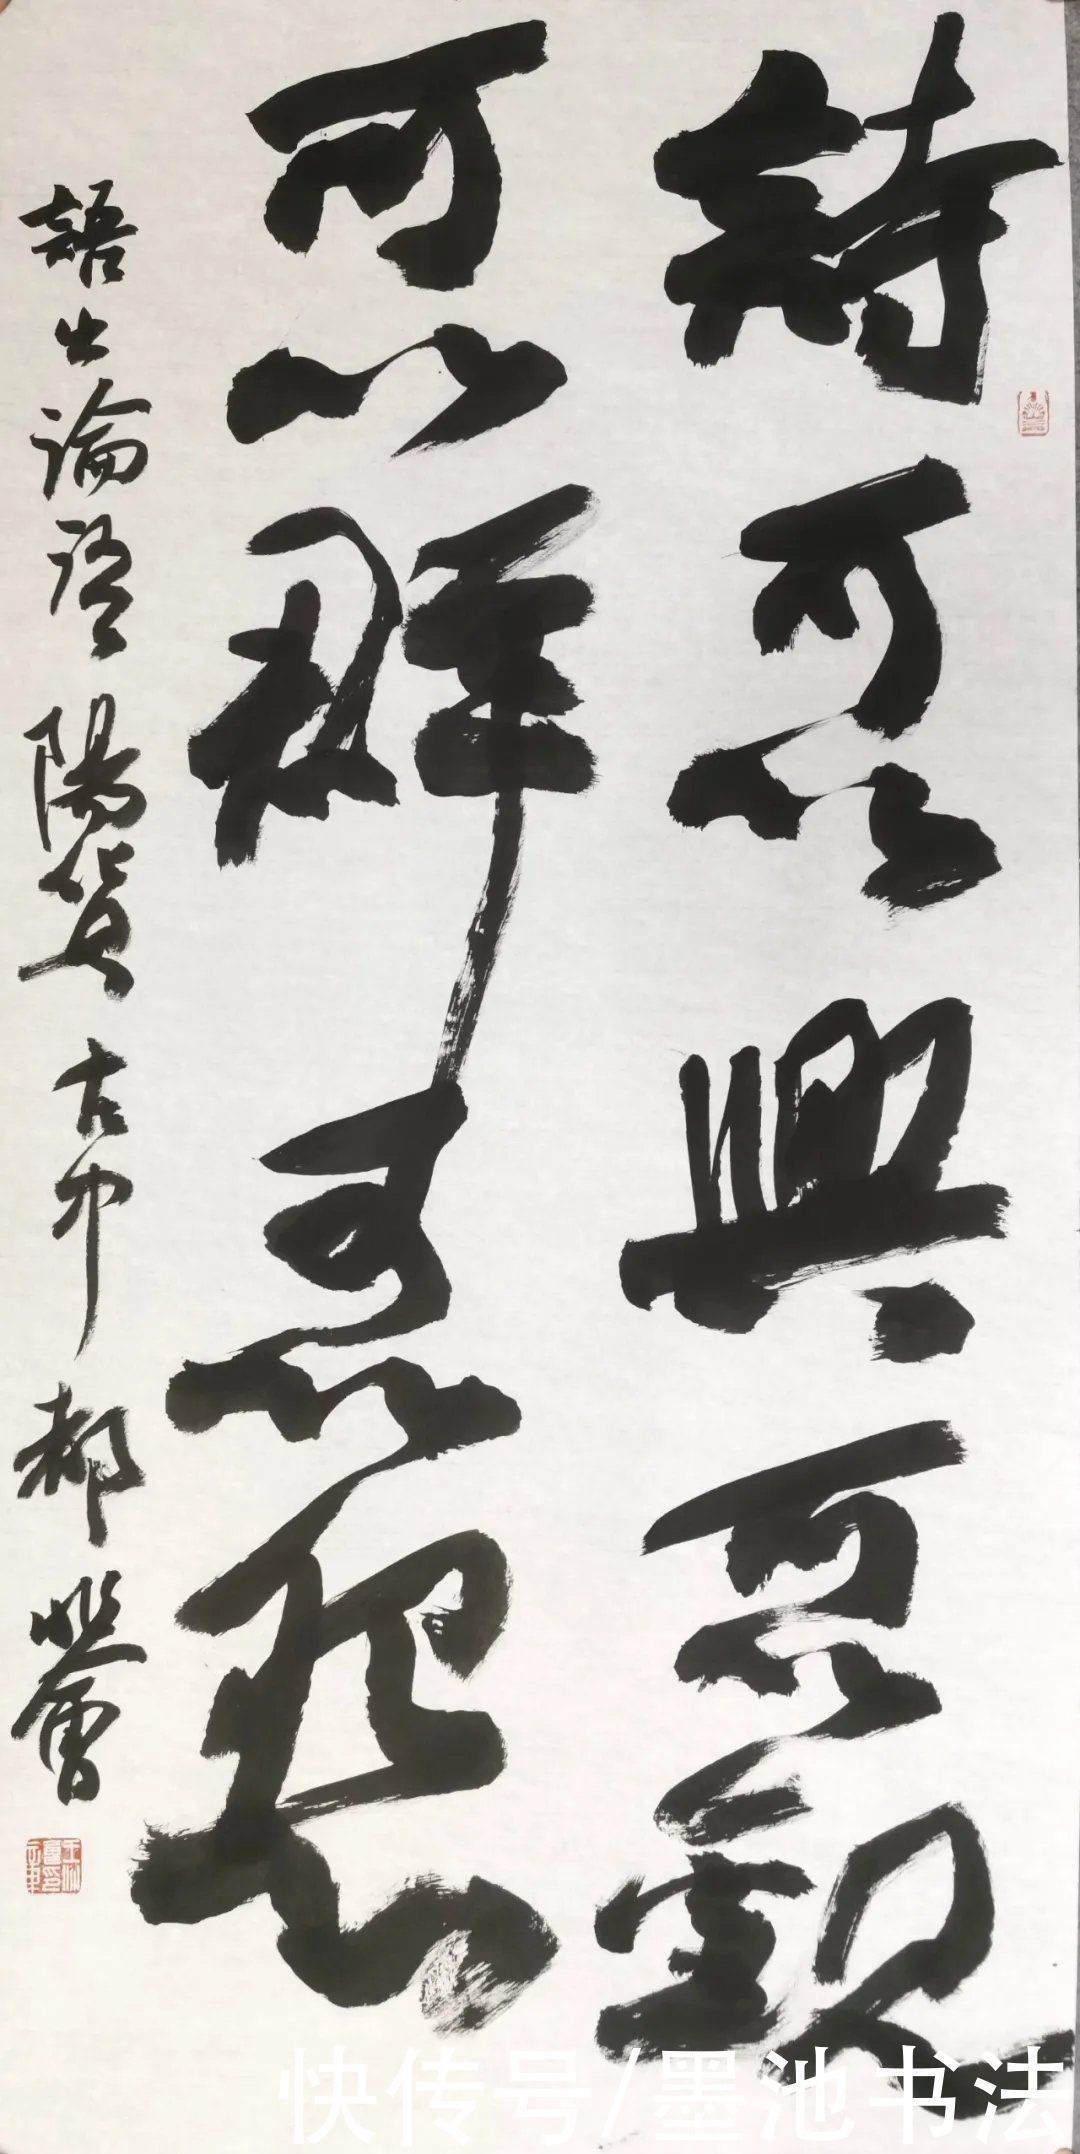 詩可以興可以觀
可以群可以怨
語出論語陽貨古中都興會
快传号/墨池书法